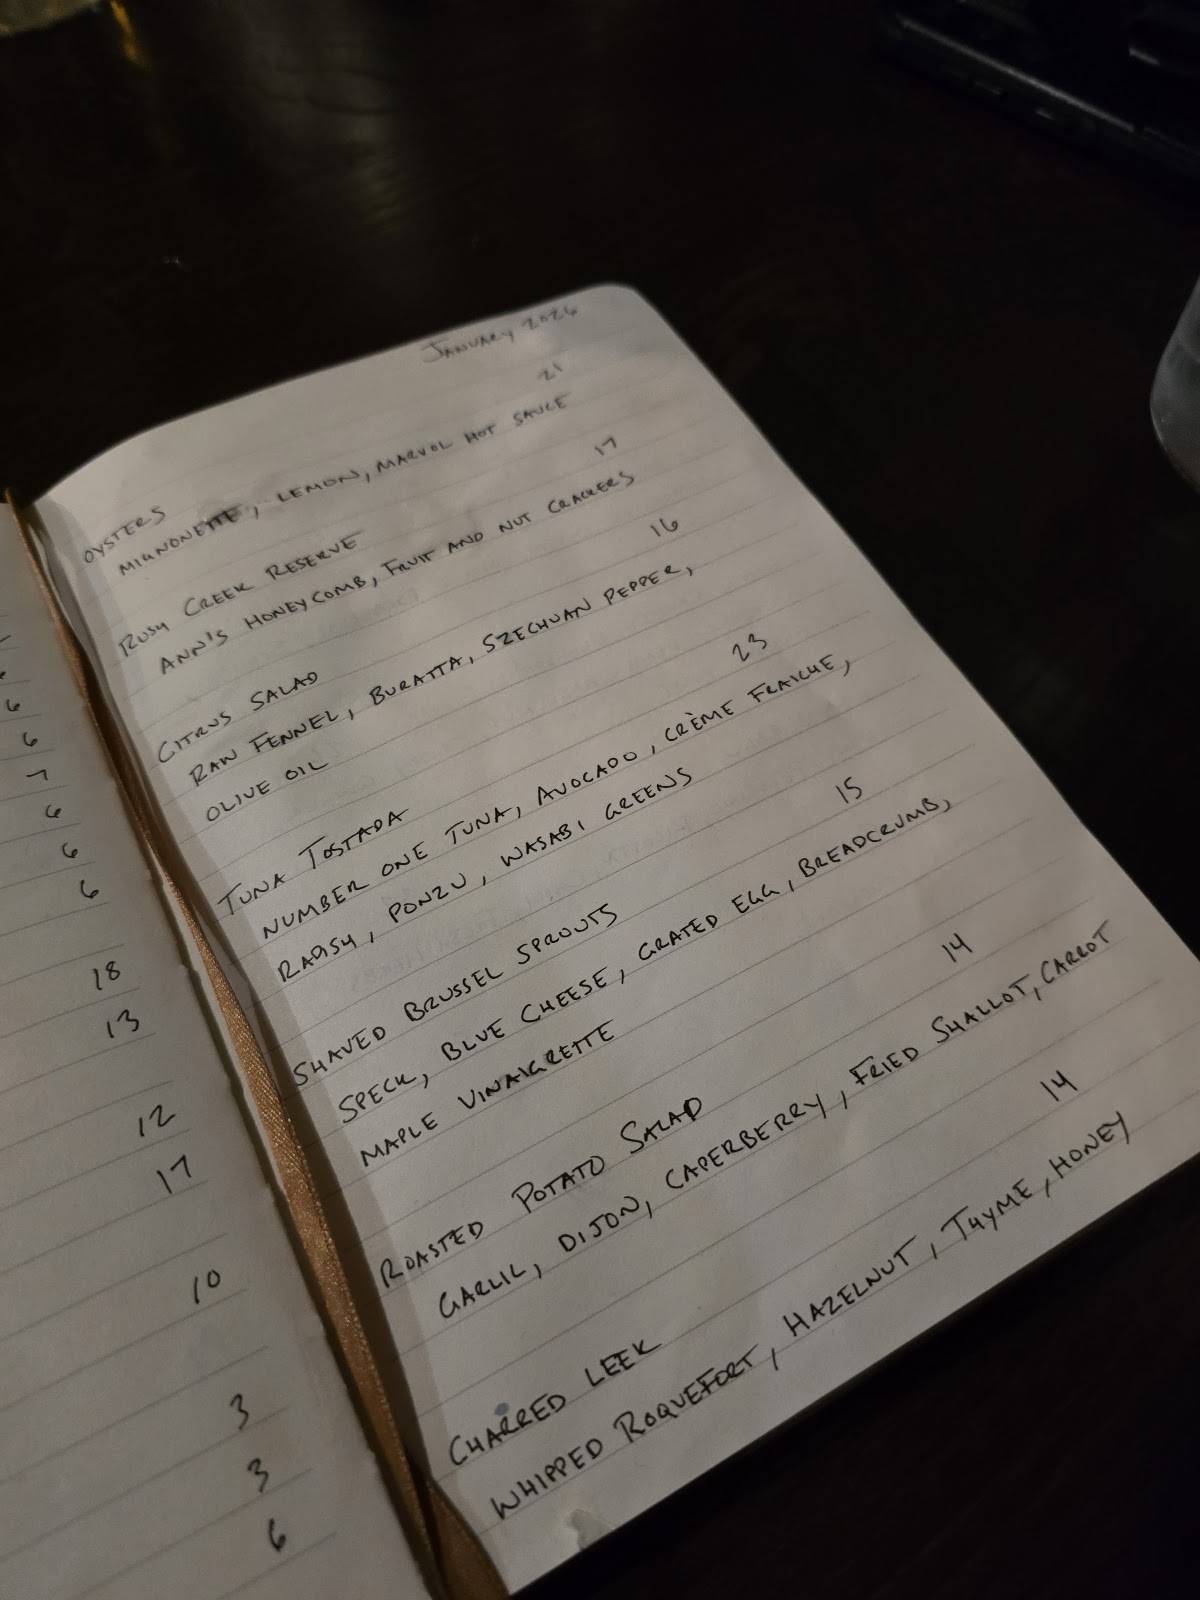 6
6
7
6
6
6
18
13
12
17
10
3
3
6
JANUARY 2026
OYSTERS 21
MIGNONETTE, LEMON, MARVOL HOT SAUCE
RUSH CREEK RESERVE 17
ANN'S HONEYCOMB, FRUIT AND NUT CRACKERS
CITRUS SALAD 16
RAW FENNEL, BURATTA, SZECHUAN PEPPER,
OLIVE OIL
TUNA TOSTADA 23
NUMBER ONE TUNA, AVOCADO, CRÈME FRAICHE,
RADISH, PONZU, WASABI GREENS
SHAVED BRUSSEL SPROUTS 15
SPECK, BLUE CHEESE, GRATED EGG, BREADCRUMB,
MAPLE VINAIGRETTE
ROASTED POTATO SALAD 14
GARLIC, DIJON, CAPERBERRY, FRIED SHALLOT, CARROT
CHARRED LEEK 14
WHIPPED ROQUEFORT, HAZELNUT, THYME, HONEY